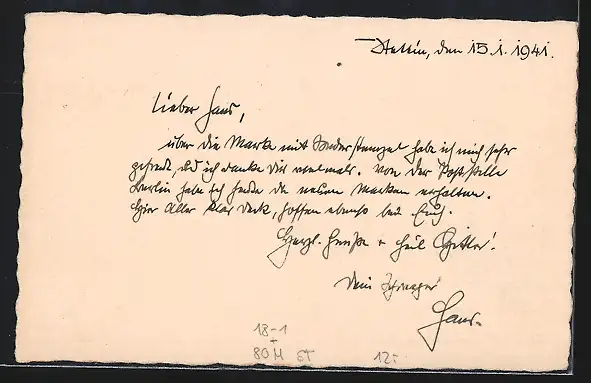 Stettin, den 15.1.1941.
Lieber Hans,
über die Marke mit Sonderstempel habe ich mich sehr
gefreut, und ich danke Dir vielmals. Von der Poststelle
Berlin habe ich heute die neuen Marken erhalten.
Hier alles klar Deck, hoffen ebenso bei Euch.
Herzl. Grüße + Heil Hitler!
Dein Schwager
Hans.
18-1
+
80 M ST 12: